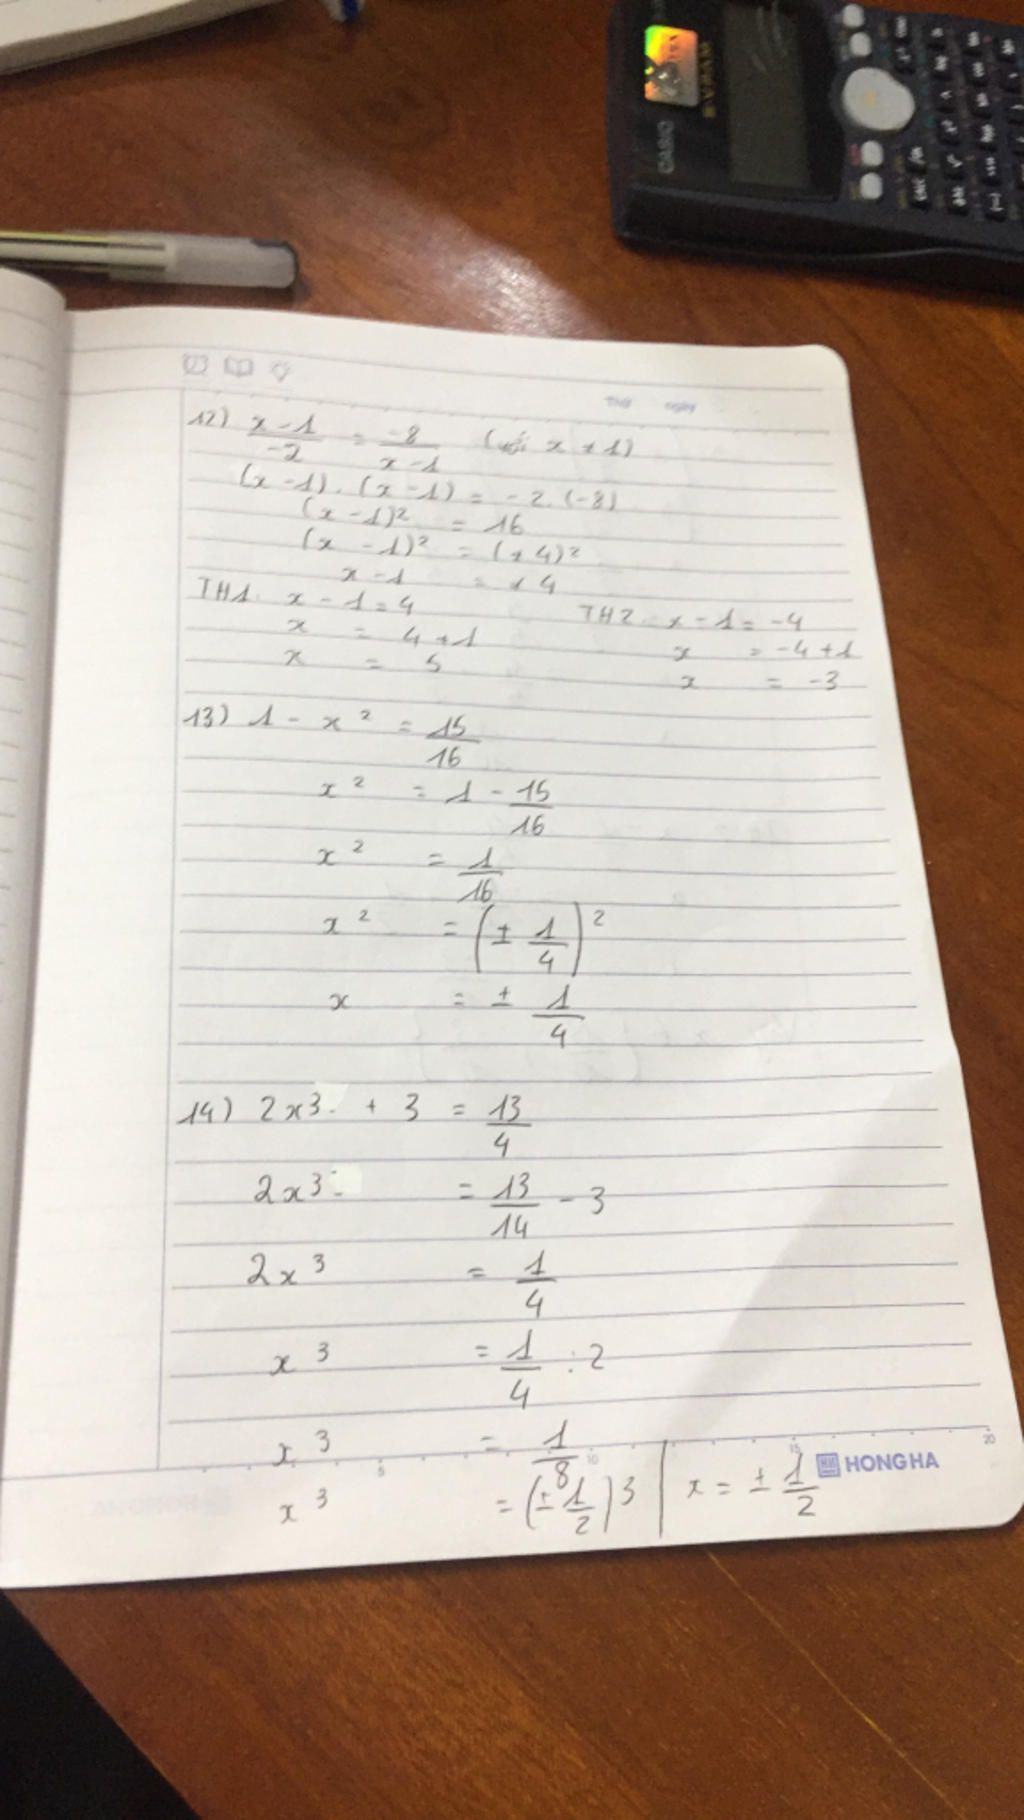 CASIO
Thứ ngày
12) x - 1 / -2 = -8 / x - 1 (với x ≠ 1)
(x - 1) . (x - 1) = -2 . (-8)
(x - 1)² = 16
(x - 1)² = (± 4)²
x - 1 = ± 4
TH1. x - 1 = 4
x = 4 + 1
x = 5
TH2. x - 1 = -4
x = -4 + 1
x = -3
13) 1 - x² = 15/16
x² = 1 - 15/16
x² = 1/16
x² = (± 1/4)²
x = ± 1/4
14) 2x³ + 3 = 13/4
2x³ = 13/14 - 3
2x³ = 1/4
x³ = 1/4 : 2
x³ = 1/8
x³ = (± 1/2)³ | x = ± 1/2
5 10 15 20
HONG HA